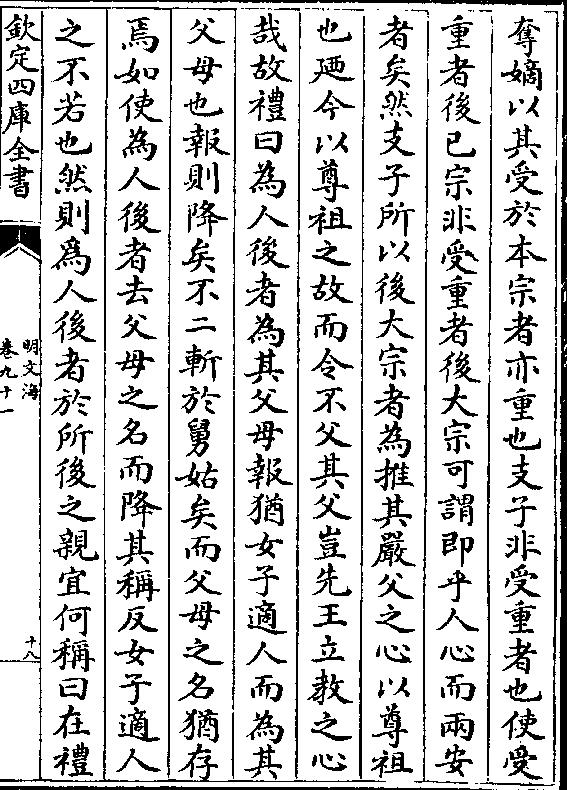 奪嫡以其受於本宗者亦重也支子非受重者也使受
重者後已宗非受重者後大宗可謂即乎人心而兩安
者矣然支子所以後大宗者為推其嚴父之心以尊祖
也廼今以尊祖之故而令不父其父豈先王立教之心
哉故禮曰為人後者為其父母報猶女子適人而為其
父母也報則降矣不二斬於舅姑矣而父母之名猶存
焉如使為人後者去父母之名而降其稱反女子適人
之不若也然則為人後者於所後之親宜何稱曰在禮
欽定四庫全書
明文海
卷九十一
十八